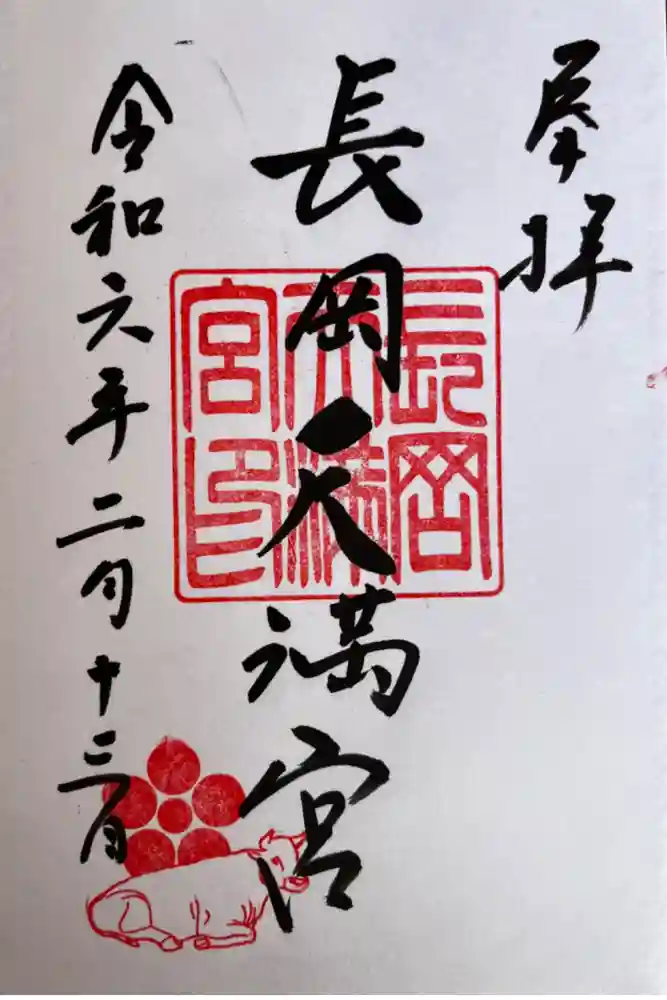 奉拝
長岡天満宮
長岡
天満
宮印
令和六年二月十三日